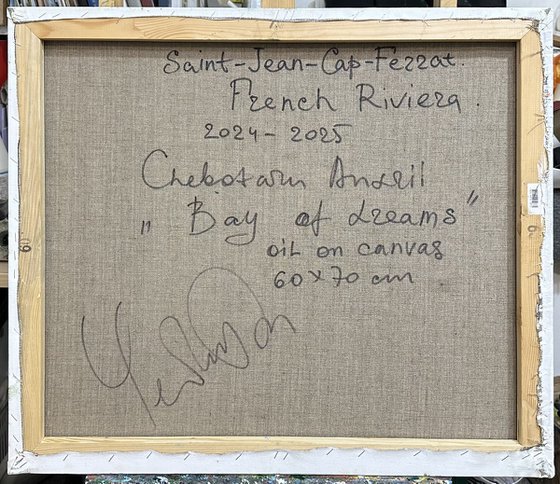 Saint-Jean-Cap-Ferrat.
French Riviera.
2024-2025
Chebotaru Andrii
„Bay of dreams”
oil on canvas
60x70 cm
60